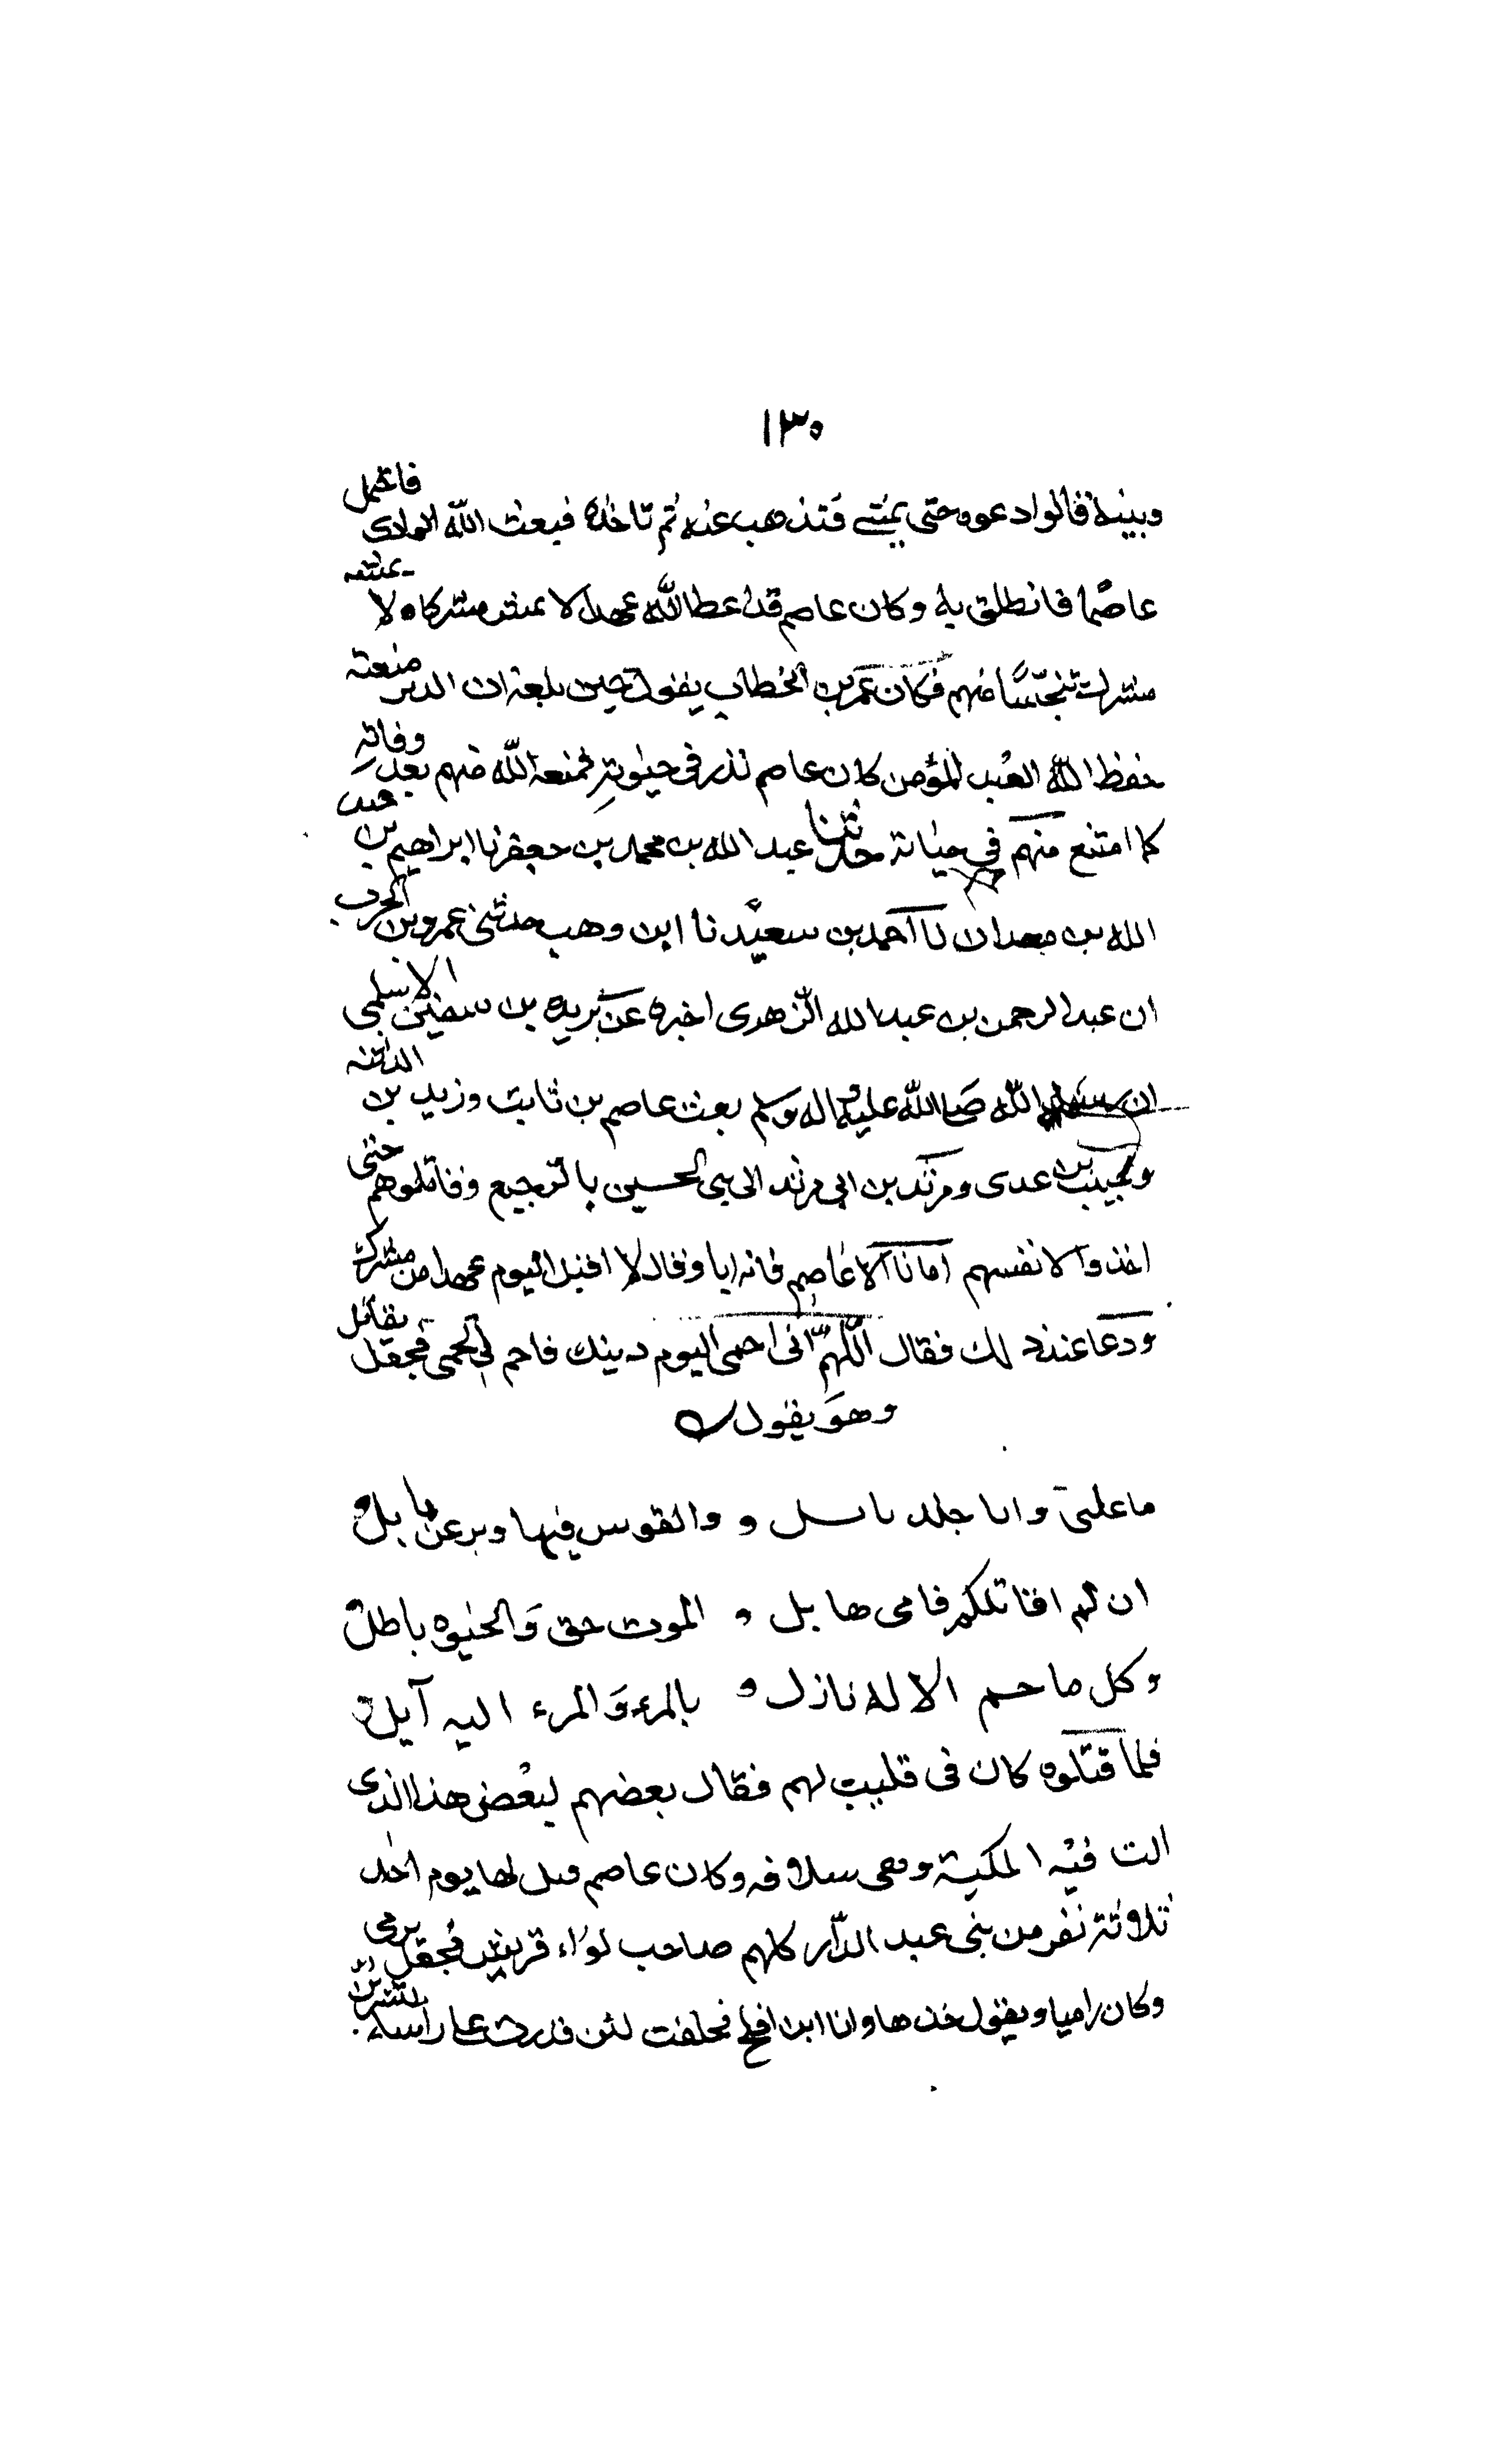 ١٣٠
وبينه قالوا دعوه حتى يمسى فتذهب عنه ثم تاخذه فبعث الله الوادى فاحتمل
عاصما فانطلق به وكان عاصم قد اعطا لله عهدا لا يمس مشركا ولا يمسه
مشرك تنجسا منهم فكان عمر بن الخطاب يقول حين بلغه ان الدبر منعته
حفظ الله العبد المؤمن كان عاصم نذر فى حيوته فمنعه الله منهم بعد وفاته
كما امتنع منهم في حياته حدثنا عبد الله بن محمد بن جعفر نا ابراهيم بن عبد
الله بن معدان نا احمد بن سعيد نا ابن وهب حدثنى عمرو بن الحرث
ان عبد الرحمن بن عبد الله الزهدى اخبره عن بريده بن سفين الاسلمى
ان رسول الله صلى الله عليه واله وسلم بعث عاصم بن ثابت وزيد بن الدثنه
وخبيب بن عدى ومرثد بن ابى مرثد الى بنى لحسين بالرجيع وقاتلوهم حتى
اخذوا لانفسهم امانا الا عاصم فانه ابا وقال لا اقبل اليوم عهدا من مشرك
ودعا عند ذلك فقال اللهم انى احمى اليوم دينك فاحم لى لحمى فجعل يقاتل
وهو يقول
ما علتى وانا جلد نابل والقوس فيها وبر عنابل
ان لم اقاتلكم فامى هابل الموت حق والحيوه باطل
وكل ما حم الاله نازل بالمرء والمرء اليه آيل
فلما قتلوه كان فى قليب لهم فقال بعضهم لبعض هذا الذى
الت فيه المكية وهى سلافه وكان عاصم قتل لها يوم احد
ثلاثة نفر من بنى عبد الدار كلهم صاحب لواء قريش فجعل يرمى
وكان راميا ويقول خذها وانا ابن افلح فحلفت لئن قدرت على راسه لتشربن